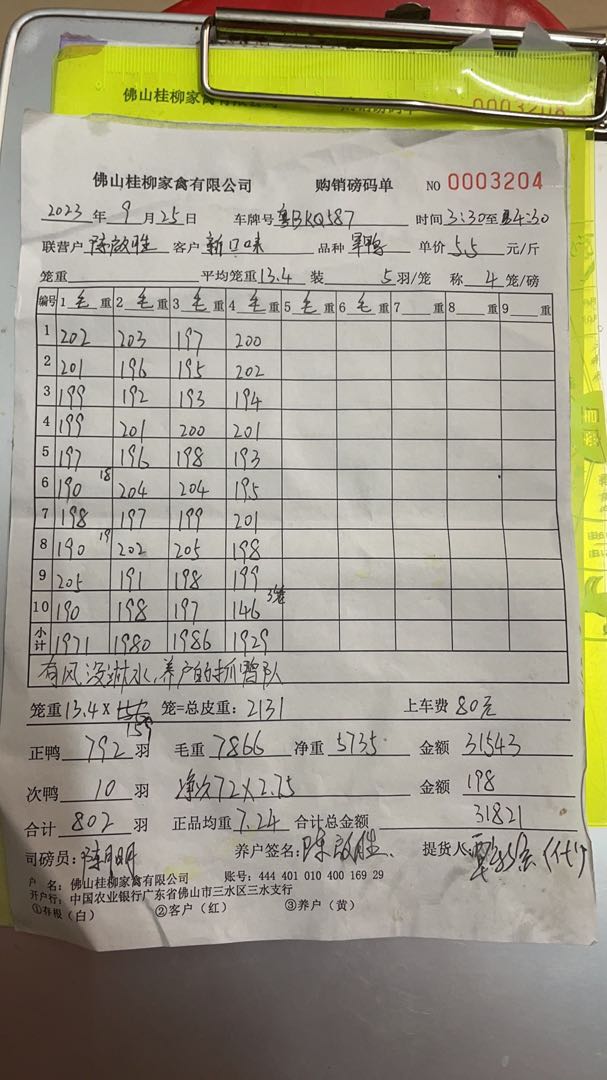 佛山桂柳家禽有限公司
0003208
佛山桂柳家禽有限公司 购销磅码单 NO 0003204
2023 年 9 月 25 日 车牌号 粤BKQ587 时间 3:30 至 4:30
联营户 陈啟胜 客户 新口味 品种 旱鸭 单价 5.5 元/斤
笼重 平均笼重 13.4 装 5 羽/笼 称 4 笼/磅
编号 1 毛 重 2 毛 重 3 毛 重 4 毛 重 5 毛 重 6 毛 重 7 重 8 重 9 重
1 202 203 197 200
2 201 196 195 202
3 199 192 193 194
4 199 201 200 201
5 197 196 198 193
6 190 18 204 204 195
7 198 197 199 201
8 190 19 202 205 198
9 205 191 198 199
10 190 198 197 146 3笼
小计 1971 1980 1986 1929
有风,没淋水,养户的抓鸭队
笼重 13.4 × 159 笼=总皮重: 2131 上车费 80元
正鸭 792 羽 毛重 7866 净重 5735 金额 31543
次鸭 10 羽 净次72×2.75 金额 198
合计 802 羽 正品均重 7.24 合计总金额 31821
司磅员: 养户签名: 陈啟胜 提货人: (代)
户 名: 佛山桂柳家禽有限公司 账号: 444 401 010 400 169 29
开户行: 中国农业银行广东省佛山市三水区三水支行
①存根(白) ②客户(红) ③养户(黄)